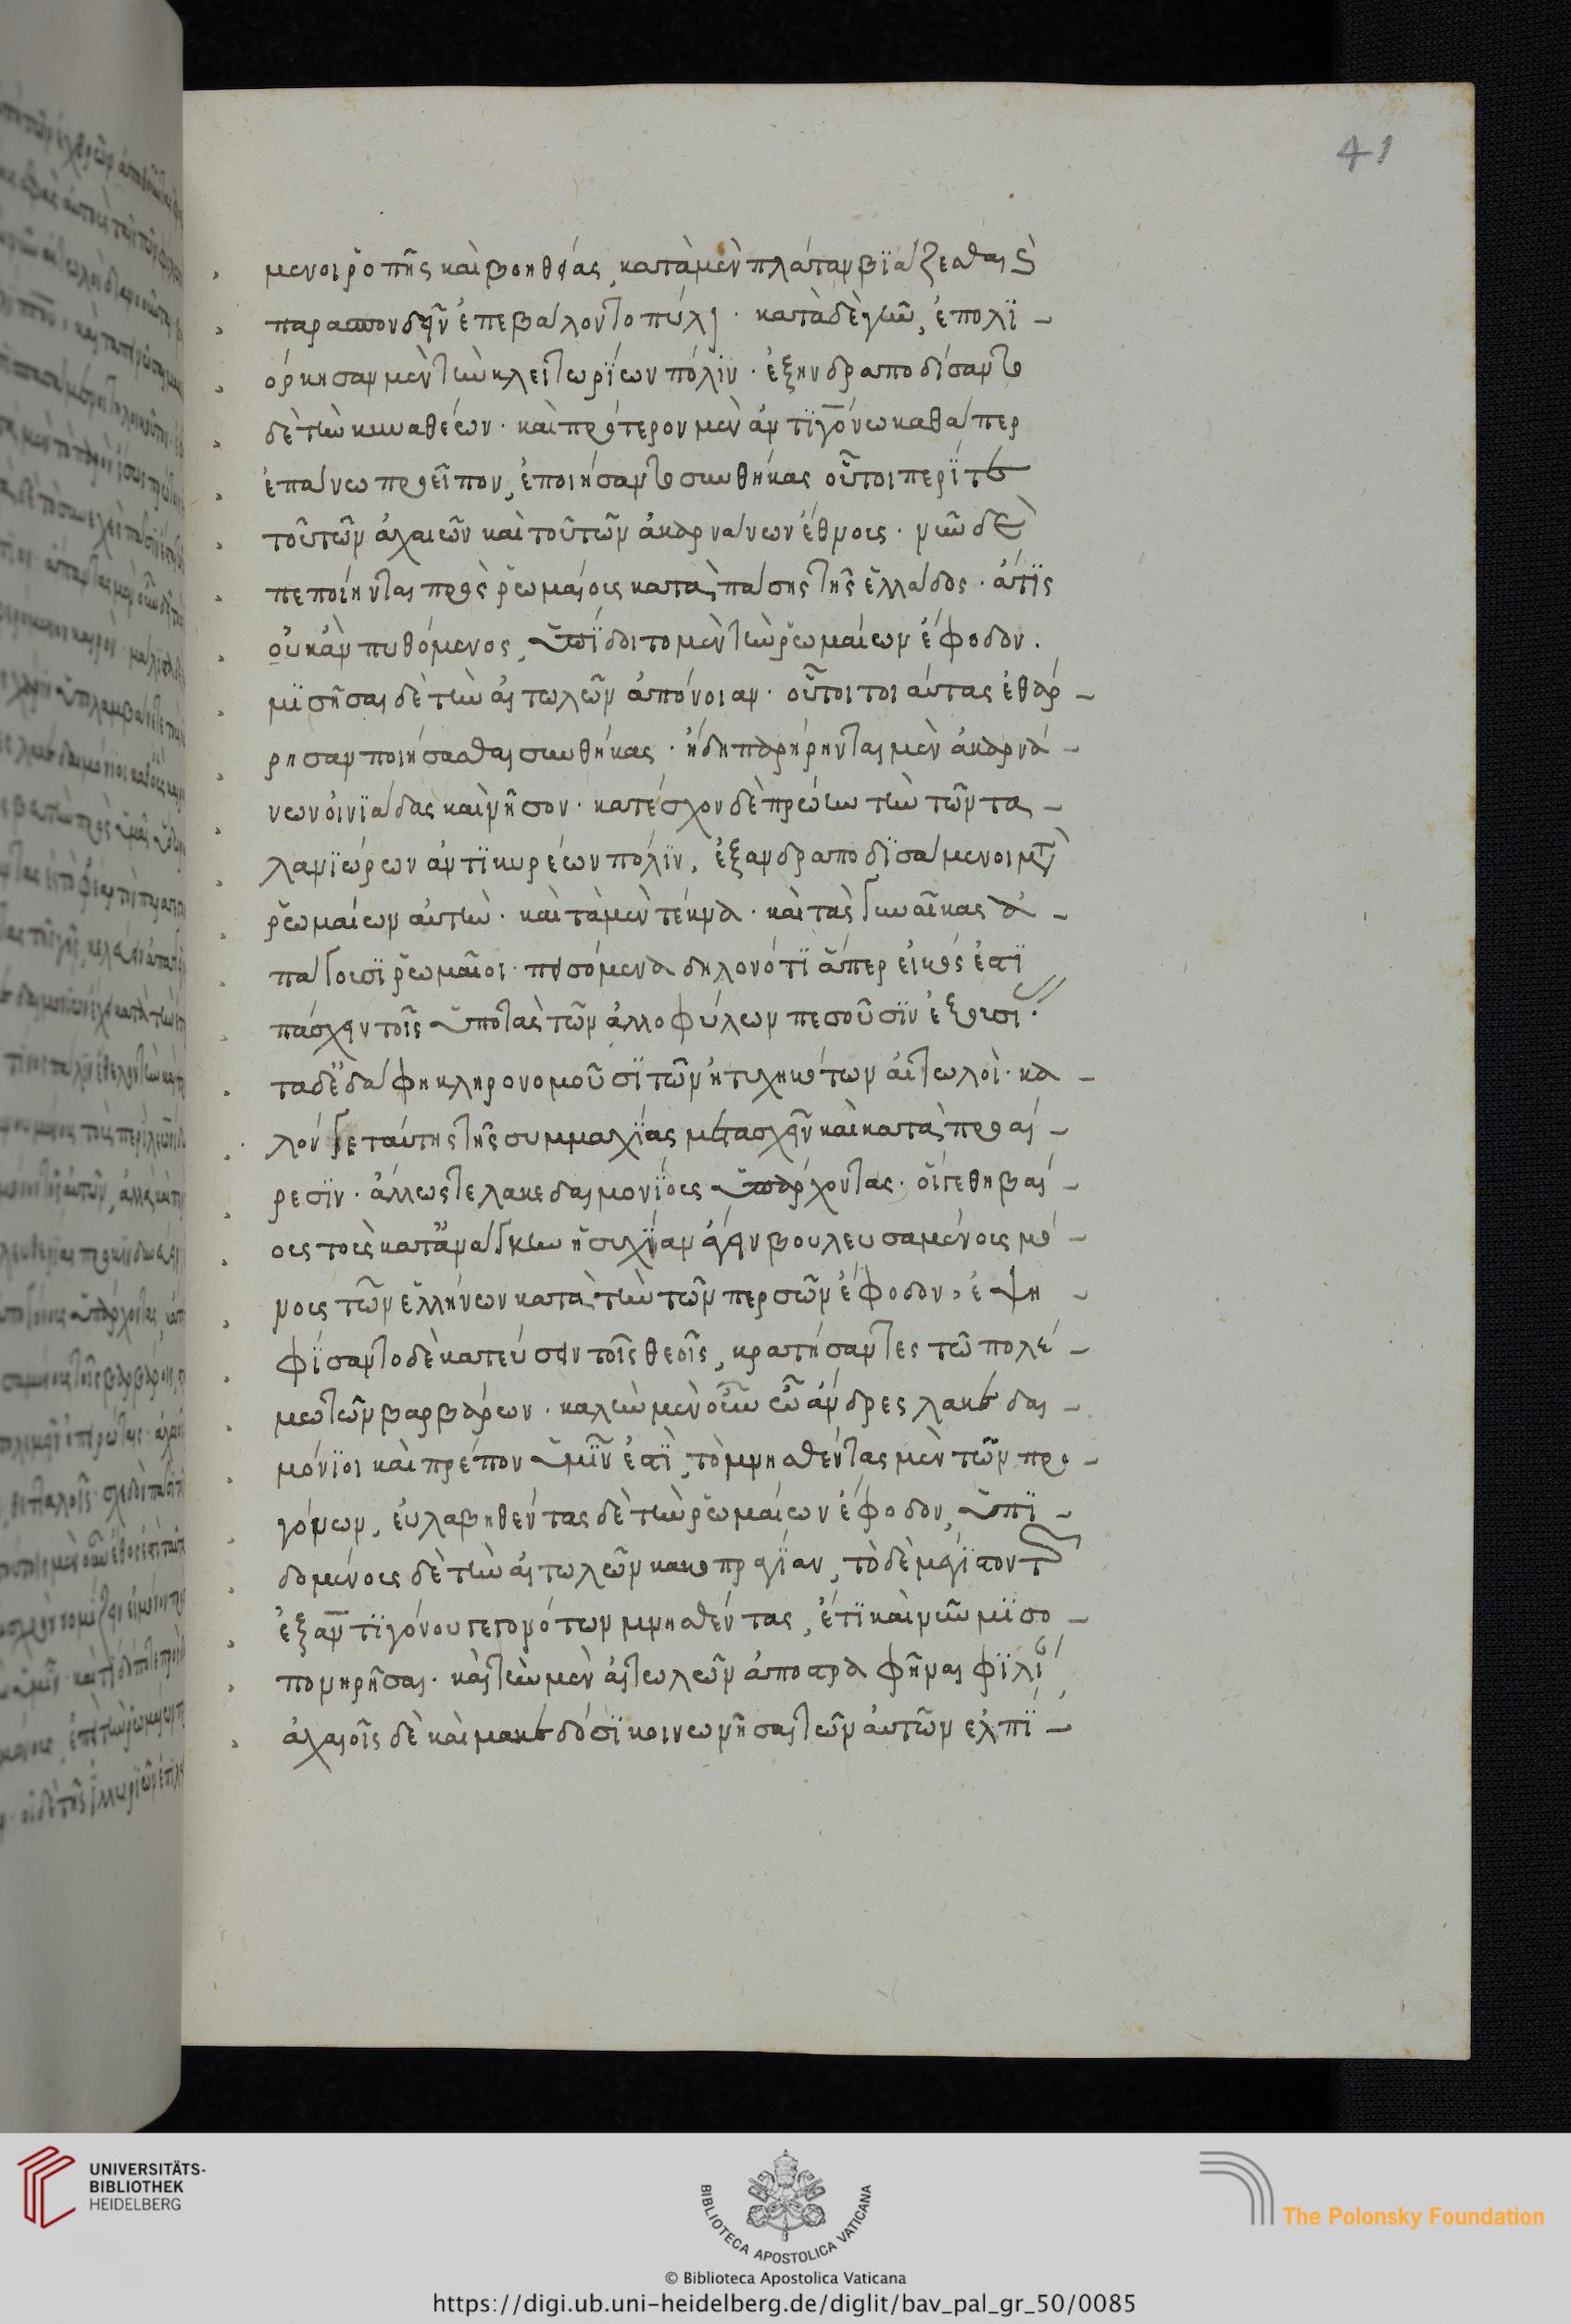 41
μενοι ῥοπῆς καὶ βοηθείας, κατὰ μὲν πλάταν βϊάζεσθαι καὶ
παρασπονδεῖν ἐπεβάλοντο πύλῃ· κατὰ δὲ γῆν, ἐπολϊ-
όρκησαν μὲν τὴν κλειτωρΐων πόλϊν· ἐξηνδραποδίσαντο
δὲ τὴν κυναθέων· καὶ πρότερον μὲν ἀντϊγόνω καθάπερ
ἐπάνω προεῖπον, ἐποιήσαντο συνθήκας οὗτοι περὶ τε
τοῦ τῶν ἀχαιῶν καὶ τοῦ τῶν ἀκαρνάνων ἔθνους· νῦν δὲ
πεποίηνται πρὸς ῥωμαίους κατὰ πάσης τῆς ἑλλάδος· ἅ τϊς
οὐκ ἂν πυθόμενος, ὑπΐδοιτο μὲν τὴν ῥωμαίων ἔφοδον.
μϊσῆσαι δὲ τὴν αἰτωλῶν ἀπόνοιαν· ὅτι τοιαύτας ἐθάρ-
ρησαν ποιήσασθαι συνθήκας· ἤδη παρήρηνται μὲν ἀκαρνά-
νων οἰνϊάδας καὶ νῆσον· κατέσχον δὲ πρώην τὴν τῶν τα-
λαιπώρων ἀντϊκυρέων πόλϊν, ἐξανδραποδϊσάμενοι μετὰ
ῥωμαίων αὐτὴν· καὶ τὰ μὲν τέκνα· καὶ τὰς γυναῖκας ἀ-
πάγουσϊ ῥωμαῖοι· πεισόμενα δηλονότϊ ἅπερ εἰκός ἐστϊ
πάσχειν τοῖς ὑπὸ τὰς τῶν ἀλλοφύλων πεσοῦσϊν ἐξουσί·
τὰ δ' ἐδάφη κληρονομοῦσϊ τῶν ἠτυχηκότων αἰτωλοὶ· κα-
λόν γε ταύτης τῆς συμμαχΐας μετασχεῖν καὶ κατὰ προαί-
ρεσϊν· ἄλλως τε λακεδαιμονΐους ὑπάρχοντας· οἵ γε θηβαί-
ους τοὺς κατ' ἀνάγκην ἡσυχΐαν ἄγειν βουλευσαμένους μό-
νους τῶν ἑλλήνων κατὰ τὴν τῶν περσῶν ἔφοδον, ἐψη-
φΐσαντο δεκατεύσειν τοῖς θεοῖς, κρατήσαντες τῷ πολέ-
μῳ τῶν βαρβάρων· καλὸν μὲν οὖν ὦ ἄνδρες λακεδαι-
μόνϊοι καὶ πρέπον ὑμῖν ἐστϊ, τὸ μνησθέντας μὲν τῶν προ-
γόνων, εὐλαβηθέντας δὲ τὴν ῥωμαίων ἔφοδον, ὑπϊ-
δομένους δὲ τὴν αἰτωλῶν κακοπραγΐαν, τὸ δὲ μέγϊστον τῶν
ἐξ ἀντϊγόνου γεγονότων μνησθέντας, ἔτϊ καὶ νῦν μϊσο-
πονηρῆσαι· καὶ τὴν μὲν αἰτωλῶν ἀποστραφῆναι φϊλί
ἀχαιοῖς δὲ καὶ μακεδόσϊ κοινωνῆσαι τῶν αὐτῶν ἐλπΐ-
UNIVERSITÄTS-
BIBLIOTHEK
HEIDELBERG
BIBLIOTECA APOSTOLICA VATICANA
The Polonsky Foundation
© Biblioteca Apostolica Vaticana
https://digi.ub.uni-heidelberg.de/diglit/bav_pal_gr_50/0085